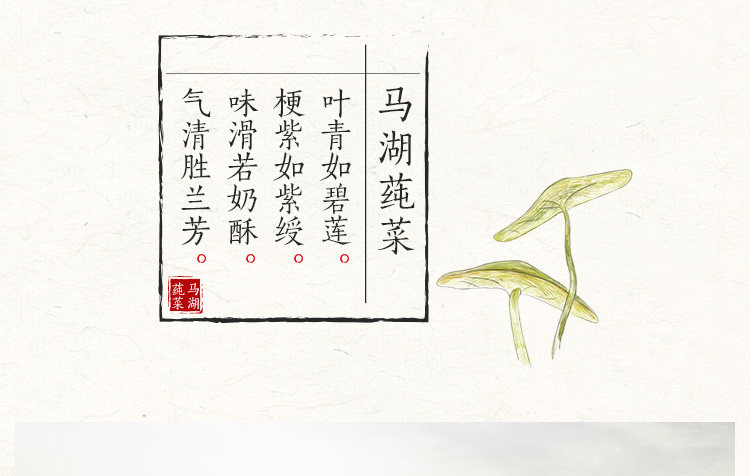 马湖莼菜
叶青如碧莲
梗紫如紫绶
味滑若奶酥
气清胜兰芳
马湖
莼菜